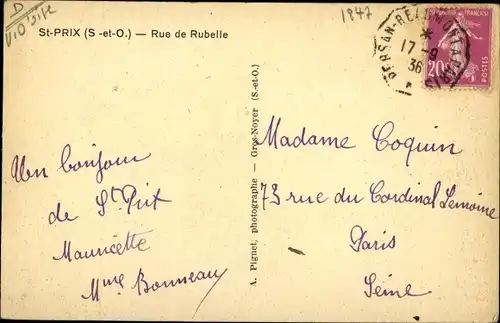 D
1847
St-PRIX (S-et-O.) — Rue de Rubelle
PERSAN-BEAUMONT A PARIS
17-9
36
20c
POSTES
A. Pignet, photographe - Gros-Noyer (S.-et-O.)
Un bonjour
de St Prix
Mauricette
Mme Bonneau
Madame Coquin
73 rue du Cardinal Lemoine
Paris
Seine